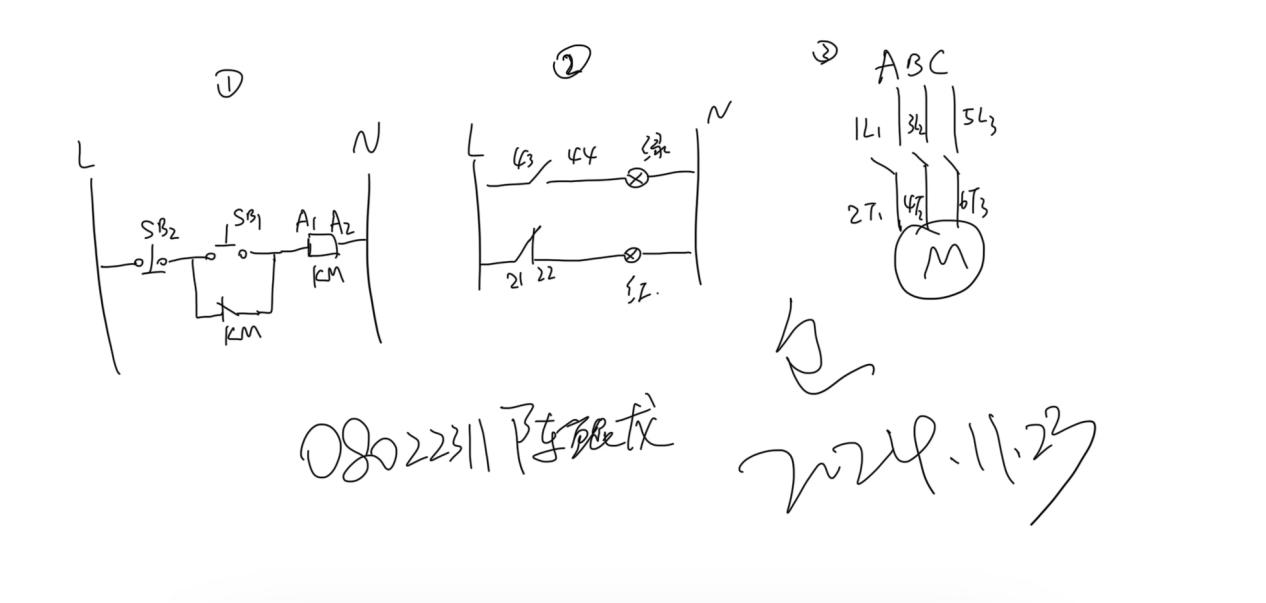 ①
L
N
SB2
SB1
A1 A2
KM
KM
②
L
N
43 44 绿
21 22
红
③
A B C
1L1 3L2 5L3
2T1 4T2 6T3
M
08022311 陈
2024.11.23